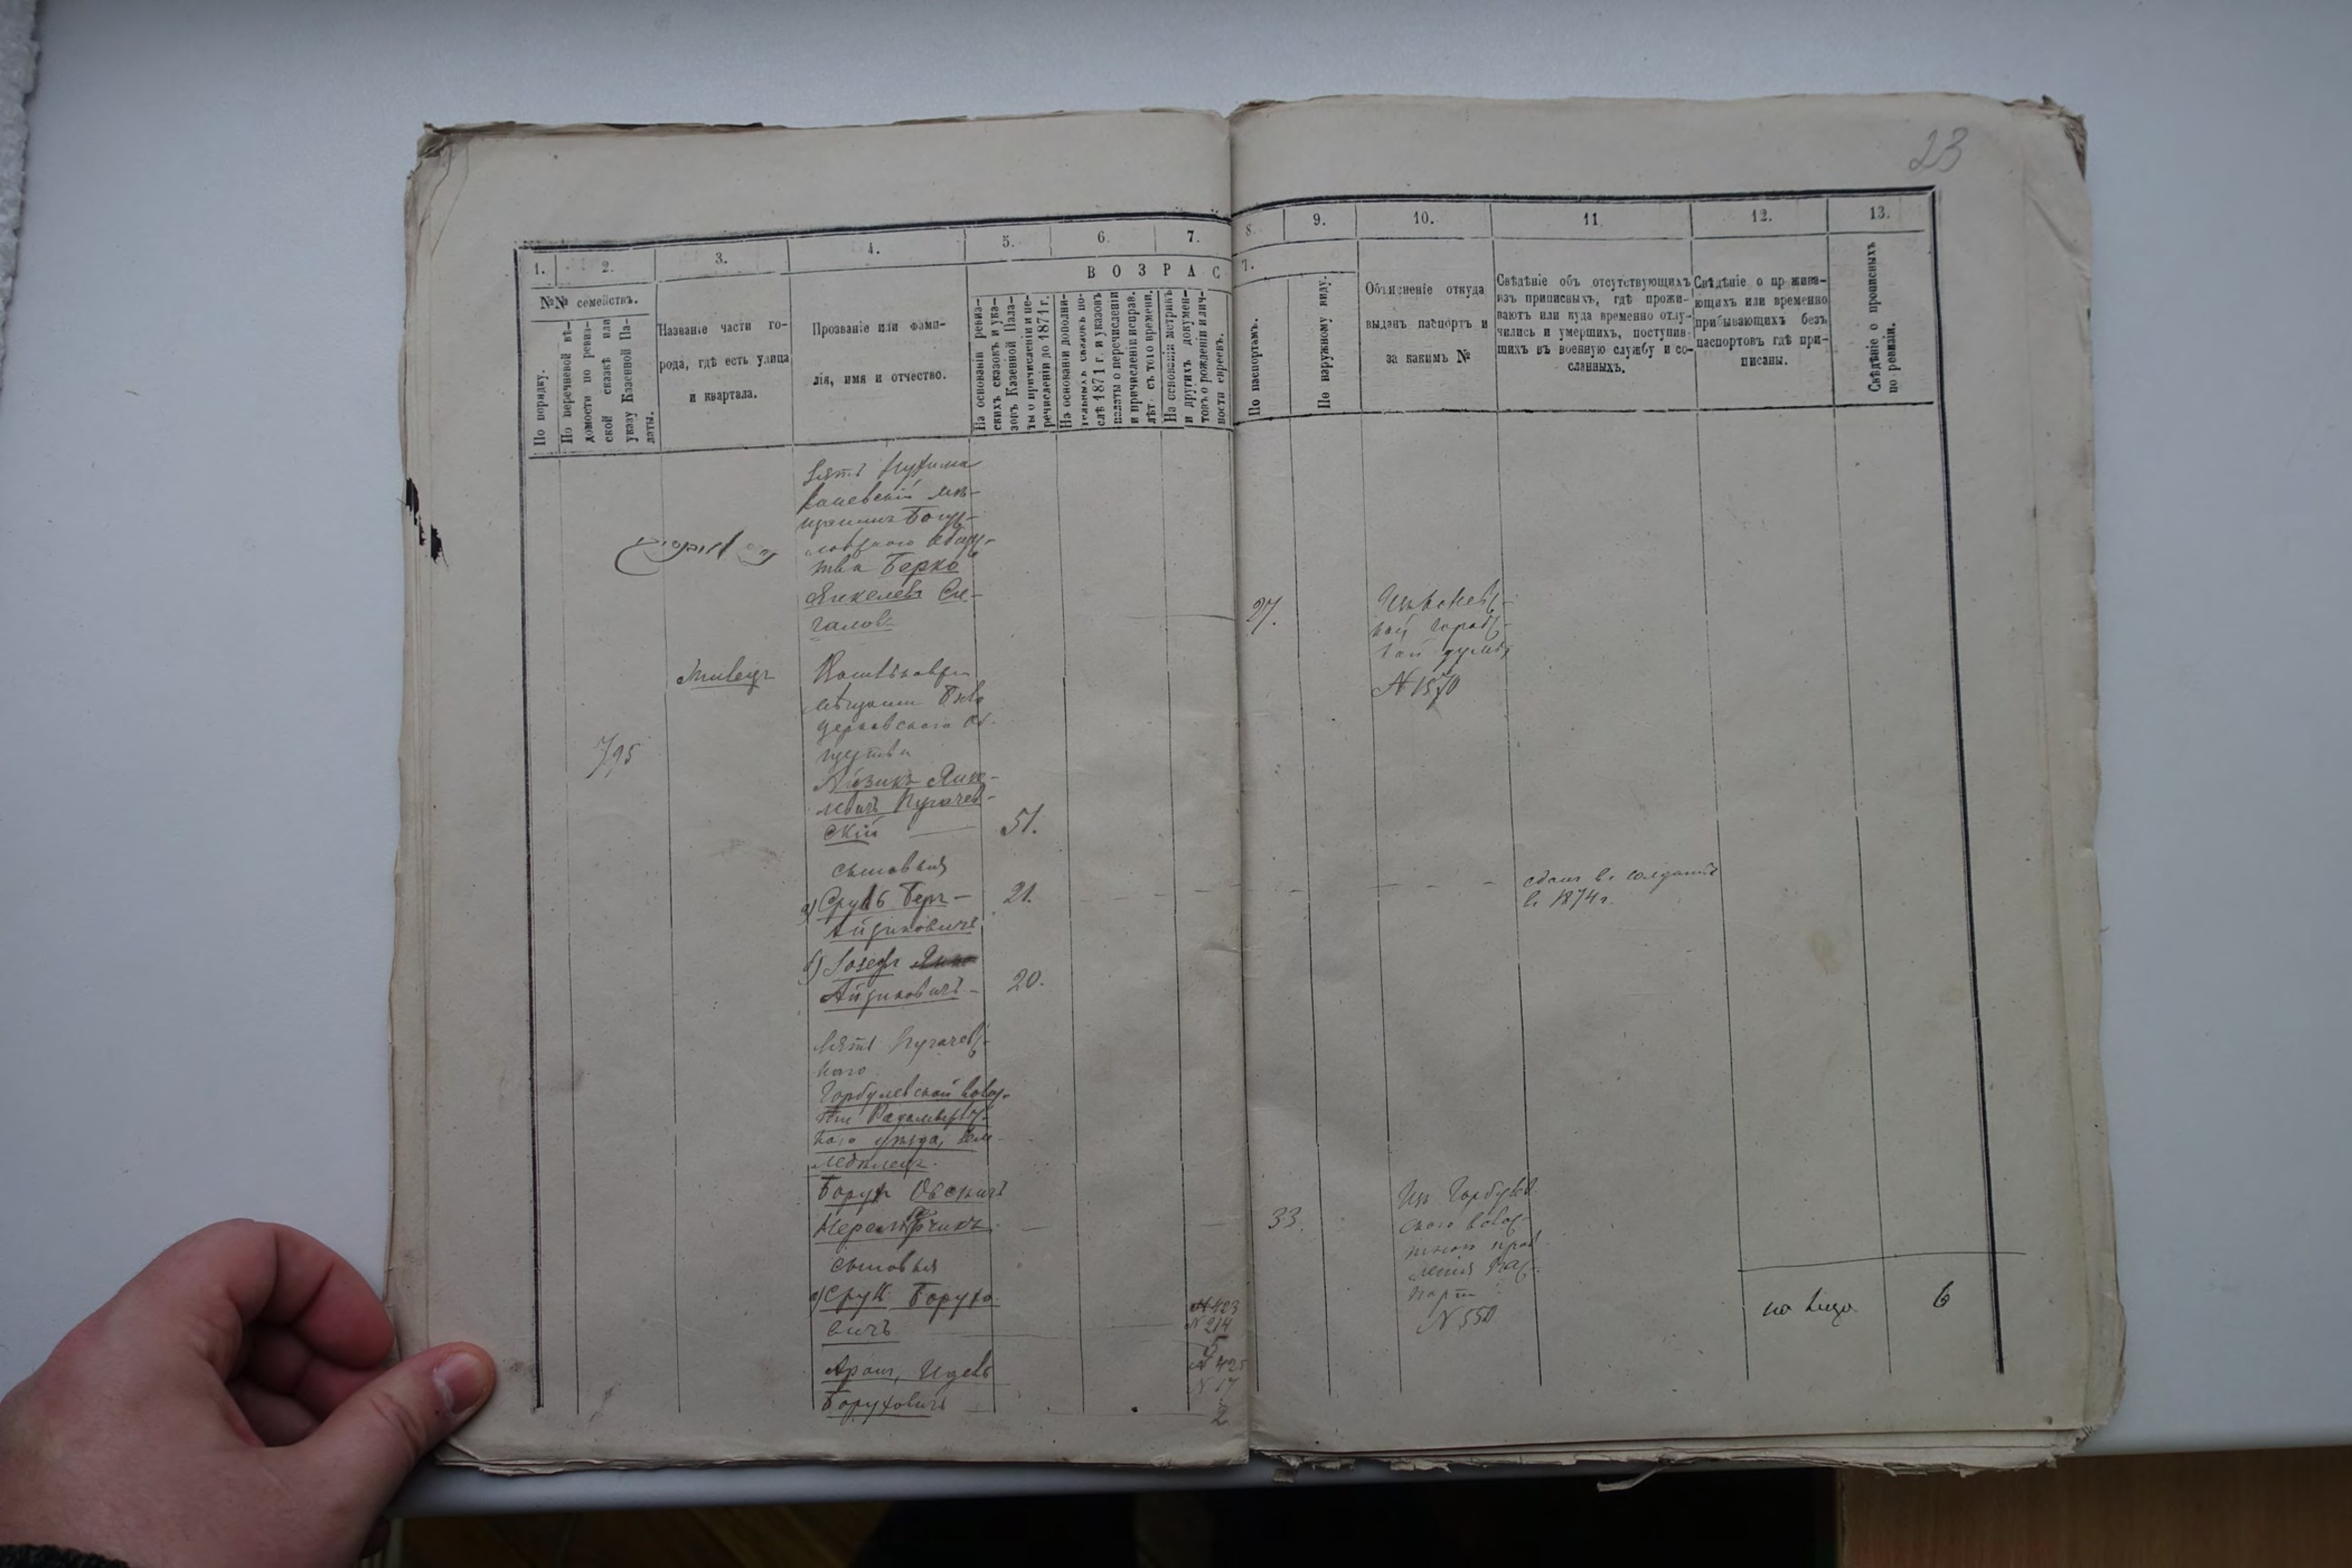 23
1. 2. 3. 4. 5. 6. 7.
8. 9. 10. 11 12. 13.
№№ семействъ.
В О З Р А С
По порядку.
По перечневой вѣ-
домости по ревиз-
ской сказкѣ или
указу Казенной Па-
латы.
Названіе части го-
рода, гдѣ есть улица
и квартала.
Прозваніе или фами-
лія, имя и отчество.
На основаніи ревиз-
скихъ сказокъ и ука-
зовъ Казенной Пала-
ты о причисленіи и пе-
речисленіи до 1871 г.
На основаніи дополни-
тельныхъ сказокъ по-
слѣ 1871 г. и указовъ
палаты о перечисленіи
и причисленіи исправ.
лѣт съ того времени.
На основаніи метрикъ
и другихъ докумен-
товъ о рожденіи и лич-
ности евреевъ.
По паспортамъ.
По наружному виду.
Объясненіе откуда
выданъ паспортъ и
за какимъ №
Свѣдѣніе объ отсутствующихъ
изъ приписныхъ, гдѣ прожи-
ваютъ или куда временно отлу-
чились и умершихъ, поступив-
шихъ въ военную службу и со-
сланныхъ.
Свѣдѣніе о прожива-
ющихъ или временно
прибывающихъ безъ
паспортовъ гдѣ при-
писаны.
Свѣдѣніе о прописныхъ
по ревизіи.
Зять
Каневскій мѣ-
щанинъ Богу-
славскаго общес-
тва Берко
Янкелевъ Си-
галовъ
27.
кой городс-
кой думы
№ 1570
мѣщанинъ Бѣло
церковскаго об-
щества
795
Айзикъ Янке-
левичъ Пугачев-
скій 51.
сыновья
а) Сруль Беръ- 21.
Айзиковичъ
сданъ въ солдаты
въ 1874 г.
б) Іосефъ
Айзиковичъ- 20.
Зять Пугачевс-
каго
Горбулевской волос-
ти Радомысльс-
каго уѣзда, зем-
ледѣлецъ.
Борухъ Овсіевичъ
33.
Изъ Горбулев
скаго волос-
тнаго прав
ленія пас-
портъ
№ 550
сыновья
а) Сруль Борухо
вичъ
№ 423
№ 214
5
Аронъ,
Боруховичъ
№ 425
№ 17
2
на лицо 6